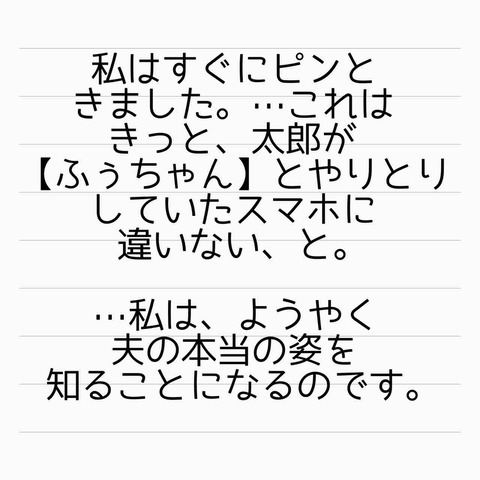 私はすぐにピンと
きました。…これは
きっと、太郎が
【ふぅちゃん】とやりとり
していたスマホに
違いない、と。
…私は、ようやく
夫の本当の姿を
知ることになるのです。